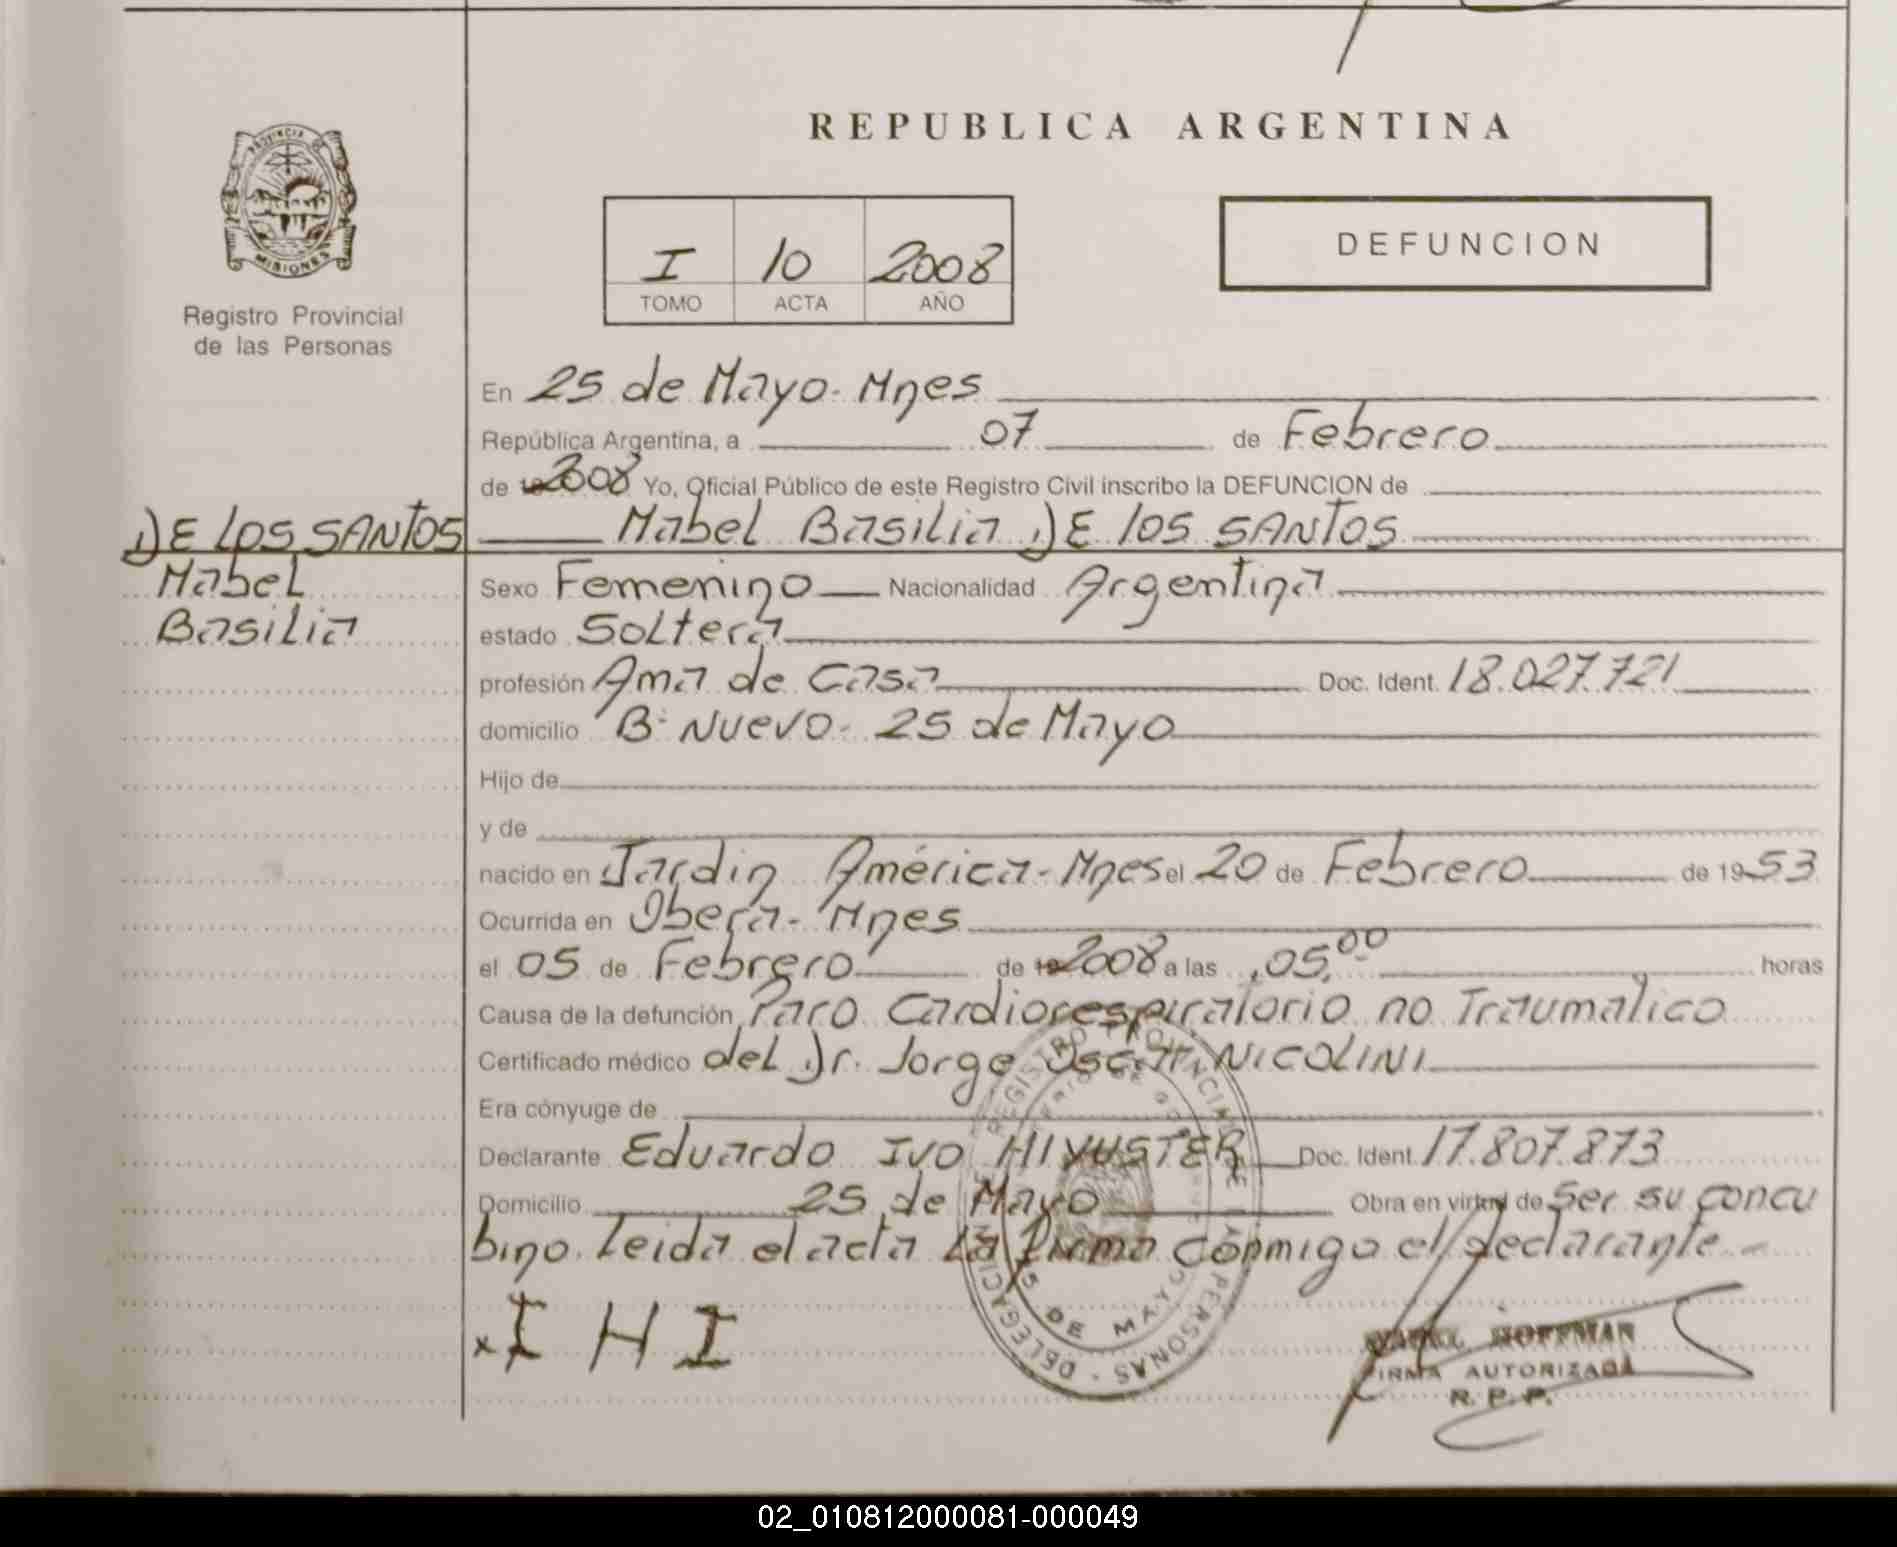 REPUBLICA ARGENTINA
PROVINCIA DE
MISIONES
Registro Provincial
de las Personas
I 10 2008
TOMO ACTA AÑO
DEFUNCION
En 25 de Mayo - Mnes
República Argentina, a 07 de Febrero
de 2008 Yo, Oficial Público de este Registro Civil inscribo la DEFUNCION de
Mabel Basilia DE los SANTOS
DE los SANTOS
Mabel
Basilia
Sexo Femenino Nacionalidad Argentina
estado Soltera
profesión Ama de Casa Doc. Ident. 18.027.721
domicilio B° Nuevo - 25 de Mayo
Hijo de
y de
nacido en Jardin América - Mnes el 20 de Febrero de 1953
Ocurrida en Obera - Mnes
el 05 de Febrero de 2008 a las 05,00 horas
Causa de la defunción Paro Cardiorespiratorio no Traumatico
Certificado médico del Dr. Jorge Oscar NICOLINI
Era cónyuge de
Declarante Eduardo Ivo Doc. Ident. 17.807.873
Domicilio 25 de Mayo Obra en virtud de Ser su concu
bino. Leida el acta La firma conmigo el declarante
x I H I
REGISTRO PROVINCIAL DE LAS PERSONAS - DELEGACION
25 DE MAYO
HOFFMAN
FIRMA AUTORIZADA
R.P.P.
02_010812000081-000049